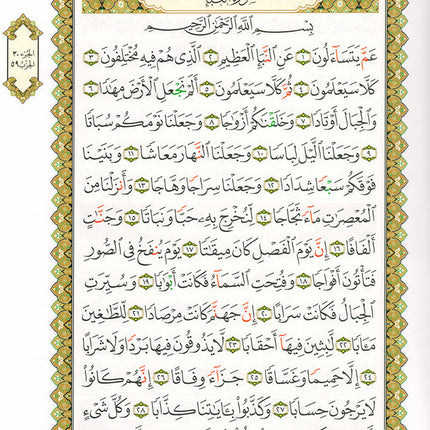 الجزء ٣٠
الحزب ٥٩
بِسْمِ ٱللَّهِ ٱلرَّحْمَٰنِ ٱلرَّحِيمِ
عَمَّ يَتَسَآءَلُونَ ١ عَنِ ٱلنَّبَإِ ٱلْعَظِيمِ ٢ ٱلَّذِى هُمْ فِيهِ مُخْتَلِفُونَ ٣
كَلَّا سَيَعْلَمُونَ ٤ ثُمَّ كَلَّا سَيَعْلَمُونَ ٥ أَلَمْ نَجْعَلِ ٱلْأَرْضَ مِهَٰدًا ٦
وَٱلْجِبَالَ أَوْتَادًا ٧ وَخَلَقْنَٰكُمْ أَزْوَٰجًا ٨ وَجَعَلْنَا نَوْمَكُمْ سُبَاتًا
٩ وَجَعَلْنَا ٱلَّيْلَ لِبَاسًا ١٠ وَجَعَلْنَا ٱلنَّهَارَ مَعَاشًا ١١ وَبَنَيْنَا
فَوْقَكُمْ سَبْعًا شِدَادًا ١٢ وَجَعَلْنَا سِرَاجًا وَهَّاجًا ١٣ وَأَنزَلْنَا مِنَ
ٱلْمُعْصِرَٰتِ مَآءً ثَجَّاجًا ١٤ لِّنُخْرِجَ بِهِۦ حَبًّا وَنَبَاتًا ١٥ وَجَنَّٰتٍ
أَلْفَافًا ١٦ إِنَّ يَوْمَ ٱلْفَصْلِ كَانَ مِيقَٰتًا ١٧ يَوْمَ يُنفَخُ فِى ٱلصُّورِ
فَتَأْتُونَ أَفْوَاجًا ١٨ وَفُتِحَتِ ٱلسَّمَآءُ فَكَانَتْ أَبْوَٰبًا ١٩ وَسُيِّرَتِ
ٱلْجِبَالُ فَكَانَتْ سَرَابًا ٢٠ إِنَّ جَهَنَّمَ كَانَتْ مِرْصَادًا ٢١ لِّلطَّٰغِينَ
مَـَٔابًا ٢٢ لَّٰبِثِينَ فِيهَآ أَحْقَابًا ٢٣ لَّا يَذُوقُونَ فِيهَا بَرْدًا وَلَا شَرَابًا
٢٤ إِلَّا حَمِيمًا وَغَسَّاقًا ٢٥ جَزَآءً وِفَاقًا ٢٦ إِنَّهُمْ كَانُوا۟
لَا يَرْجُونَ حِسَابًا ٢٧ وَكَذَّبُوا۟ بِـَٔايَٰتِنَا كِذَّابًا ٢٨ وَكُلَّ شَىْءٍ